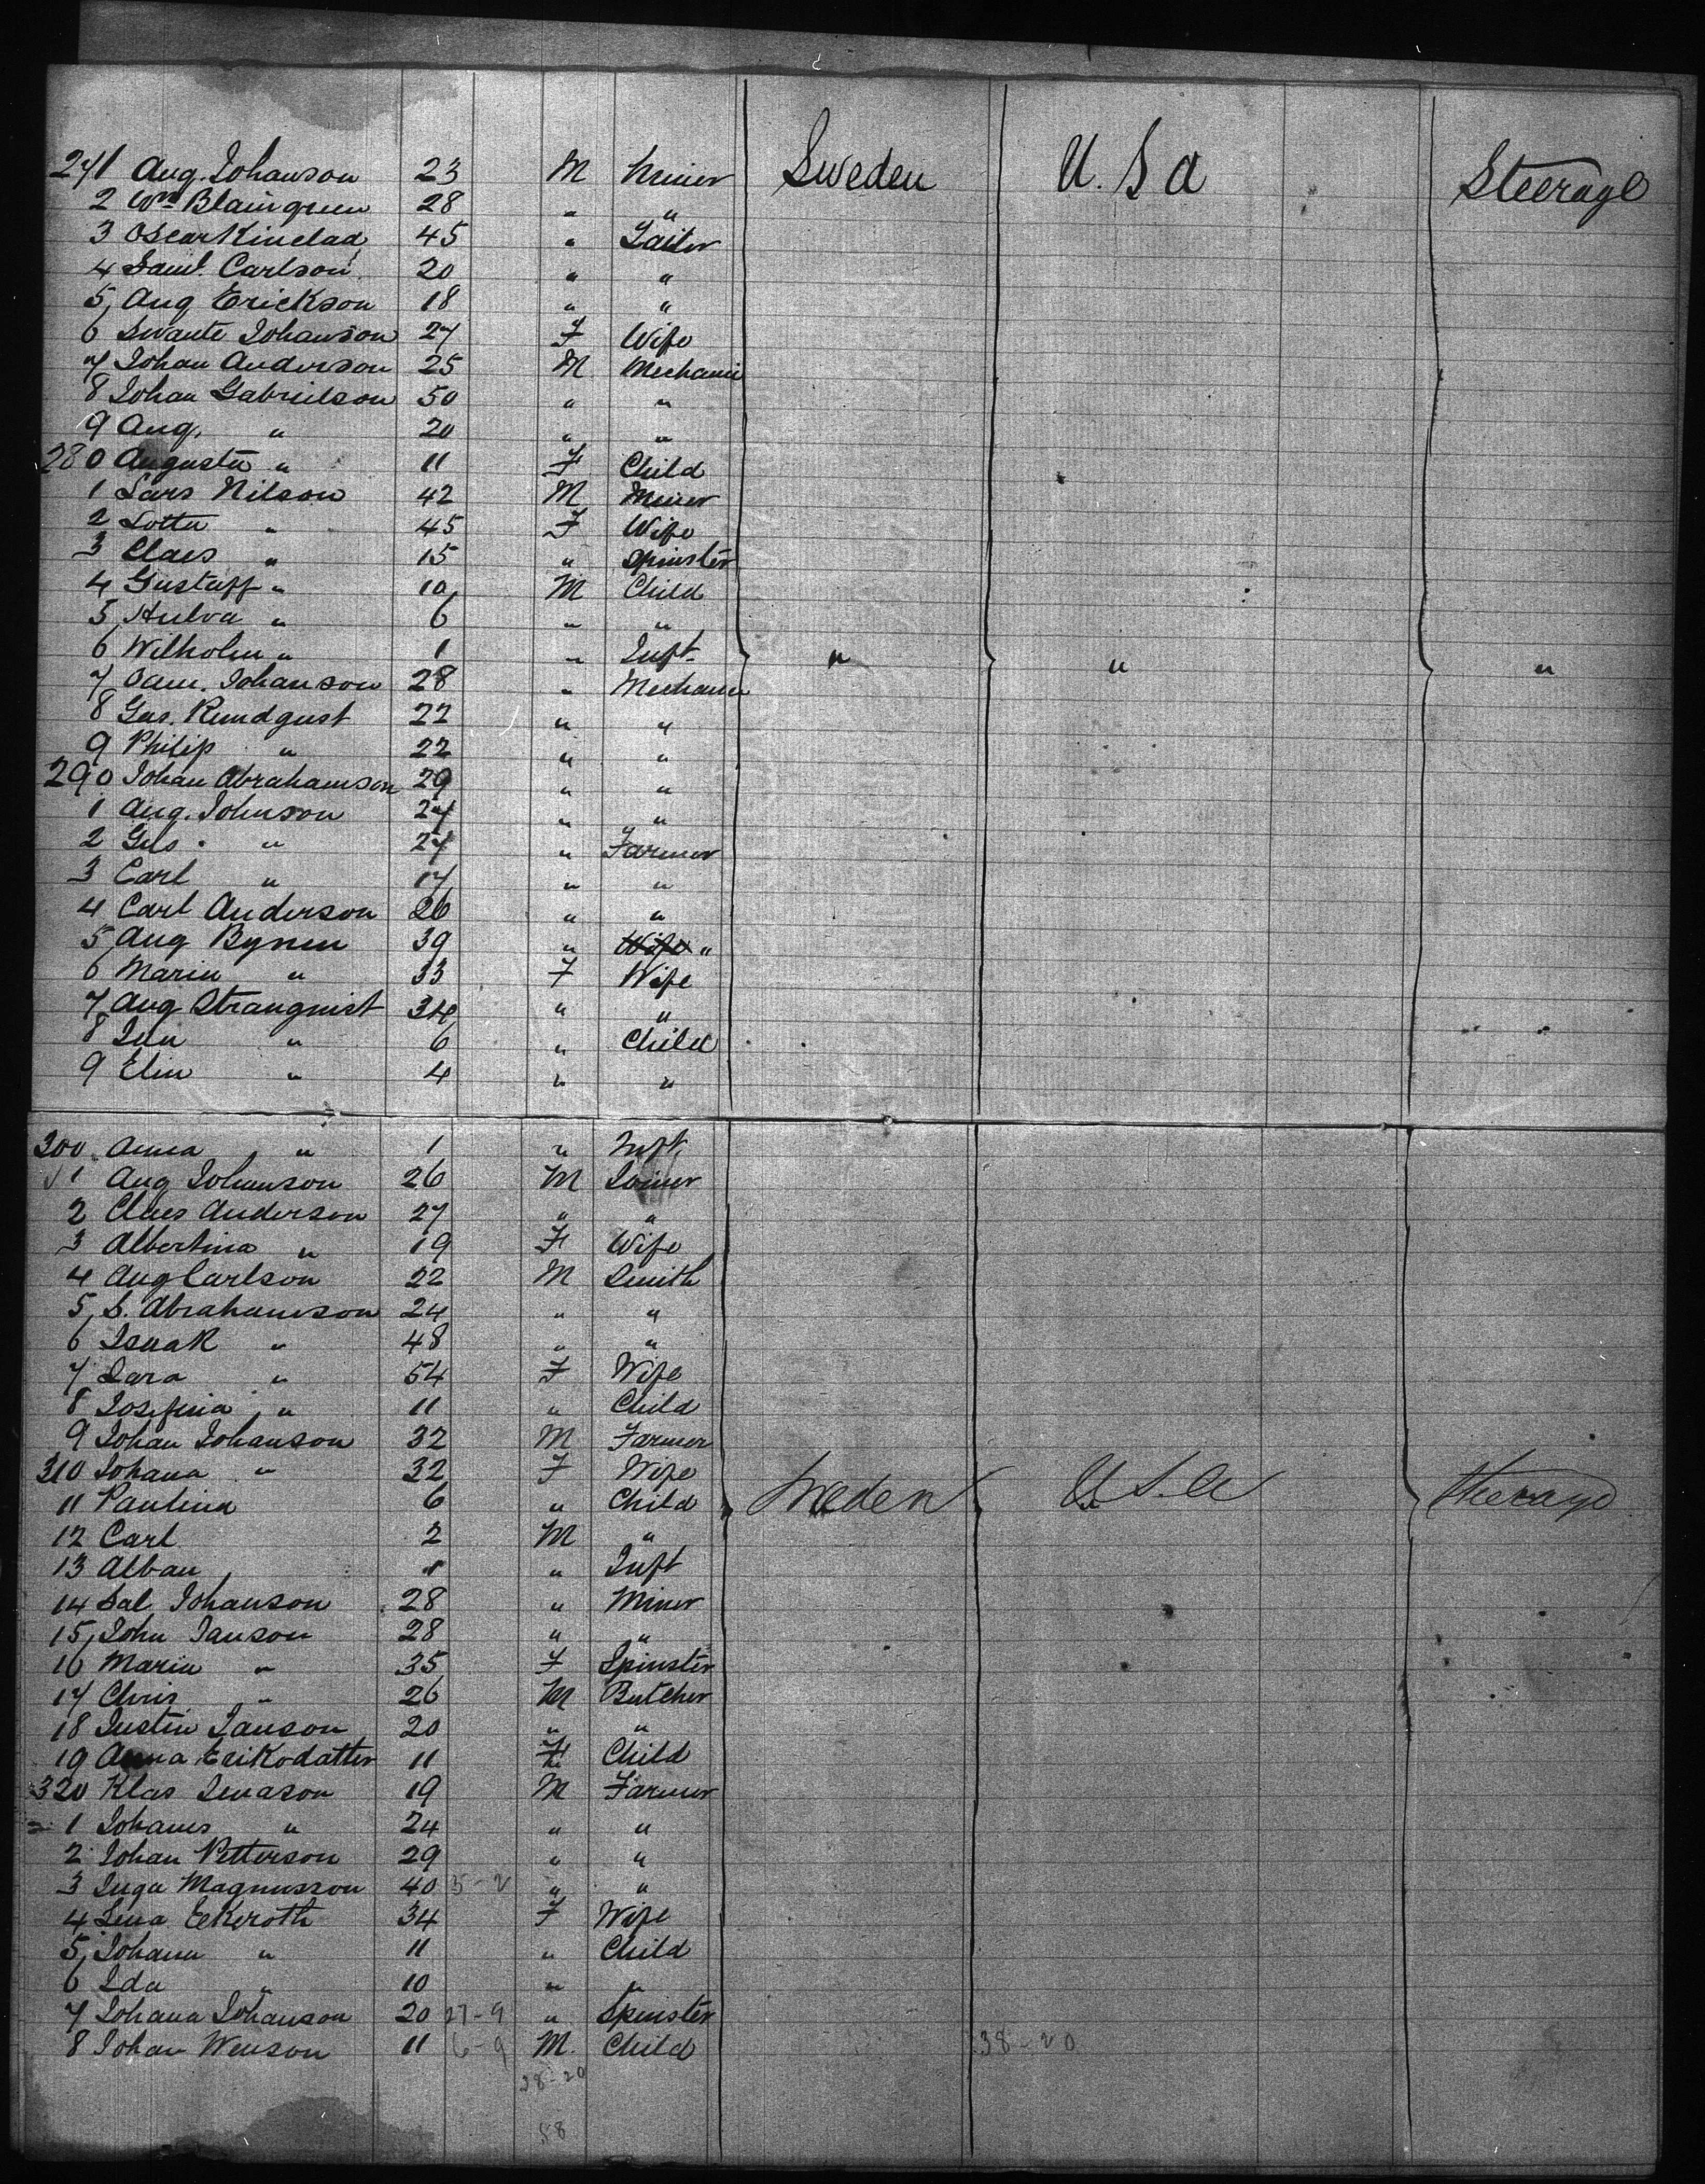 271 Aug. Johanson 23 M Miner Sweden U. S a Steerage
2 Wm Blaingreen 28 " "
3 Oscar Kinelad 45 " Tailor
4 Saml. Carlson 20 " "
5 Aug Erickson 18 " "
6 Swante Johanson 27 F Wife
7 Johan Anderson 25 M Mechanic
8 Johan Gabrielson 50 " "
9 Aug. " 20 " "
280 Augusta " 11 F Child
1 Lars Nilson 42 M Miner
2 Lotta " 45 F Wife
3 Claes " 15 " Spinster
4 Gustaff " 10 M Child
5 Hulva " 6 " "
6 Wilholm " 1 " Inft. " " "
7 Sam. Johanson 28 " Mechanic
8 Gus. Rundgust 22 " "
9 Philip " 22 " "
290 Johan Abrahamson 29 " "
1 Aug. Johnson 27 " "
2 Gus. " 27 " Farmer
3 Carl " 17 " "
4 Carl Anderson 26 " "
5 Aug Bynen 39 " Wife "
6 Maria " 33 F Wife
7 Aug Stranquist 34 " "
8 " 6 " Child
9 Elin " 4 " "
300 Anna " 1 " Inft.
1 Aug Johanson 26 M Joiner
2 Claes Anderson 27 " "
3 Albertina " 19 F Wife
4 Aug Carlson 22 M Smith
5 S. Abrahamson 24 " "
6 Isaak " 48 " "
7 Sara " 54 F Wife
8 Josefina " 11 " Child
9 Johan Johanson 32 M Farmer
310 Johana " 32 F Wife
11 Paulina 6 " Child Sweden U. S. a Steerage
12 Carl 2 M "
13 Alban " Inft
14 Sal Johanson 28 " Miner
15 John Janson 28 " "
16 Maria " 35 F Spinster
17 Chris " 26 M Butcher
18 Justin Janson 20 " "
19 Anna Eriksdatter 11 F Child
320 Klas Jenason 19 M Farmer
1 Johanes " 24 " "
2 Johan Petterson 29 " "
3 Inga Magnusson 40 5-2 " "
4 Lena Eekeroth 34 F Wife
5 Johann " 11 " Child
6 Ida " 10 " "
7 Johana Johanson 20 27-9 " Spinster
8 Johan Wenson 11 6-9 M. Child 38-20
28-20
58